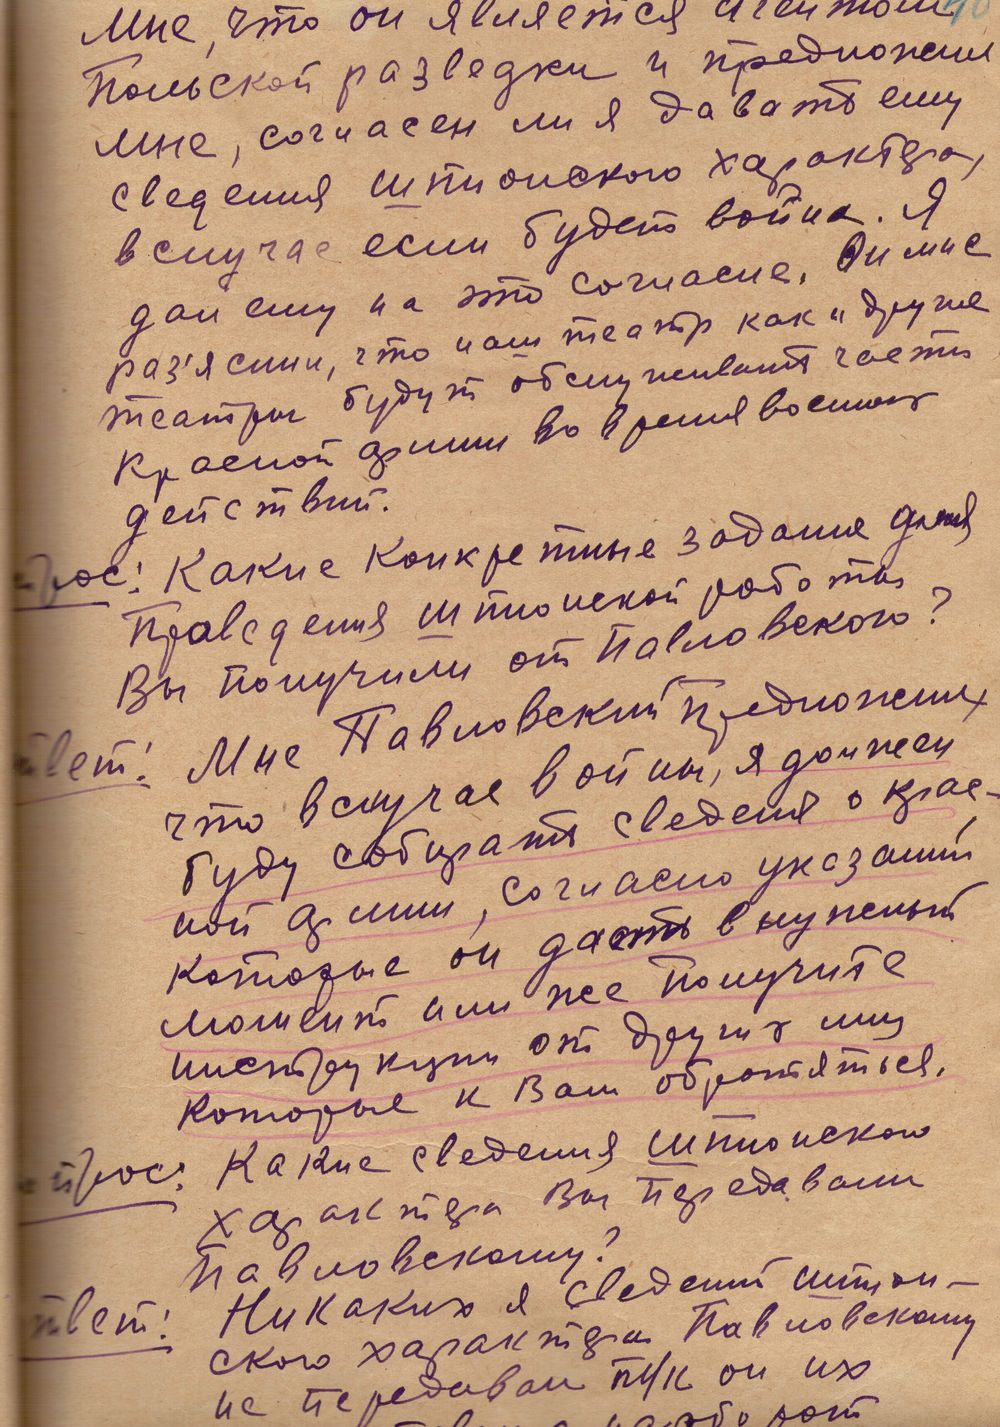 мне, что он является агентом
Польской разведки и предложил
мне, согласен ли я давать ему
сведения шпионского характера,
в случае если будет война. Я
дал ему на это согласие. Он мне
раз'яснил, что наш театр как и другие
театры будут обслуживать части
Красной армии во время военных
действий.
прос: Какие конкретные задания для
Проведения шпионской работы
Вы получили от Павловского?
твет: Мне Павловский предложил
что в случае войны, я должен
буду собирать сведения о крас-
ной армии, согласно указаний
которые он даст в нужный
момент или же получите
инструкции от других лиц
которые к Вам обратяться.
прос: Какие сведения шпионского
характера Вы передавали
Павловскому?
твет: Никаких я сведений шпион-
ского характера Павловскому
не передавал т/к он их
наоборот